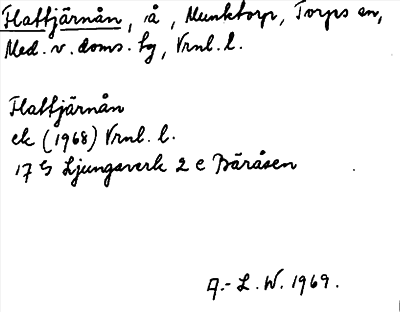 Flattjärnån, å, Munktorp, Torps sn,
Med. v. doms. hg, Vrnl. l.
Flattjärnån
ek (1968) Vrnl. l.
17 G Ljungaverk 2 e Båråsen
A.-L. W. 1969.